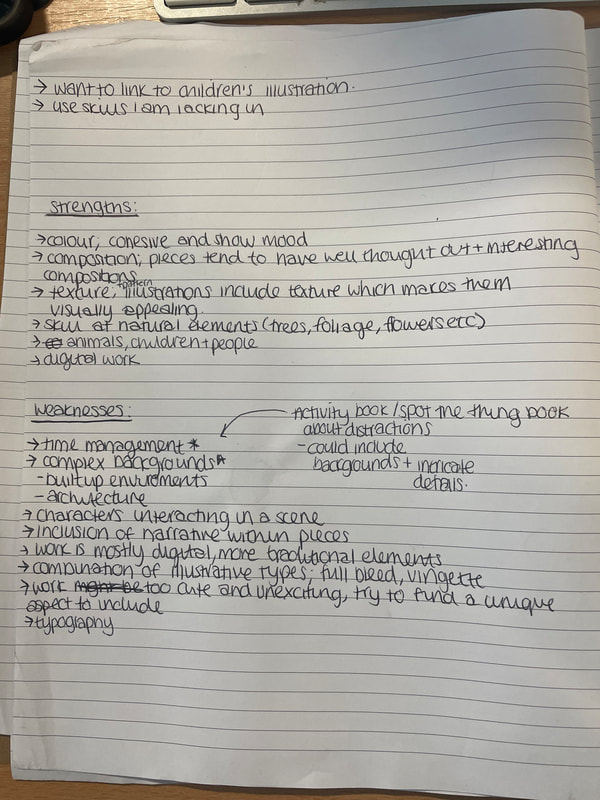 → want to link to children's illustration.
→ use skills I am lacking in
strengths:
→ colour, cohesive and show mood
→ composition; pieces tend to have well thought out + interesting
compositions
+ pattern
→ texture; illustrations include texture which makes them
visually appealing.
→ skill at natural elements (trees, foliage, flowers etc)
→ animals, children + people
→ digital work
weaknesses:
Activity book / spot the thing book
about distractions
- could include
backgrounds + intricate
details.
→ time management *
→ complex backgrounds *
- built up enviroments
- architecture
→ characters interacting in a scene
→ inclusion of narrative within pieces
→ work is mostly digital, more traditional elements
→ combination of illustrative types; full bleed, vingette
→ work might be too cute and unexciting, try to find a unique
aspect to include
→ typography